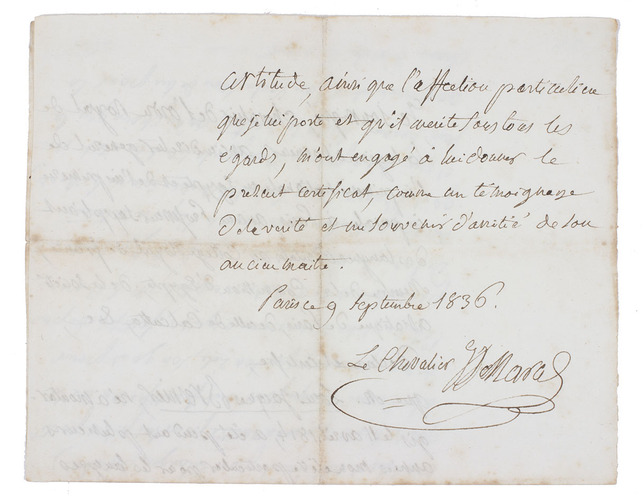 certitude, ainsi que l'affection particuliere
que je lui porte et qu'il merite sous tous les
egards, m'ont engagé à lui donner le
présent certificat, comme un témoignage
de la verité et un souvenir d'amitié de son
ancien maitre.
Paris ce 9 Septembre 1836.
Le Chevalier